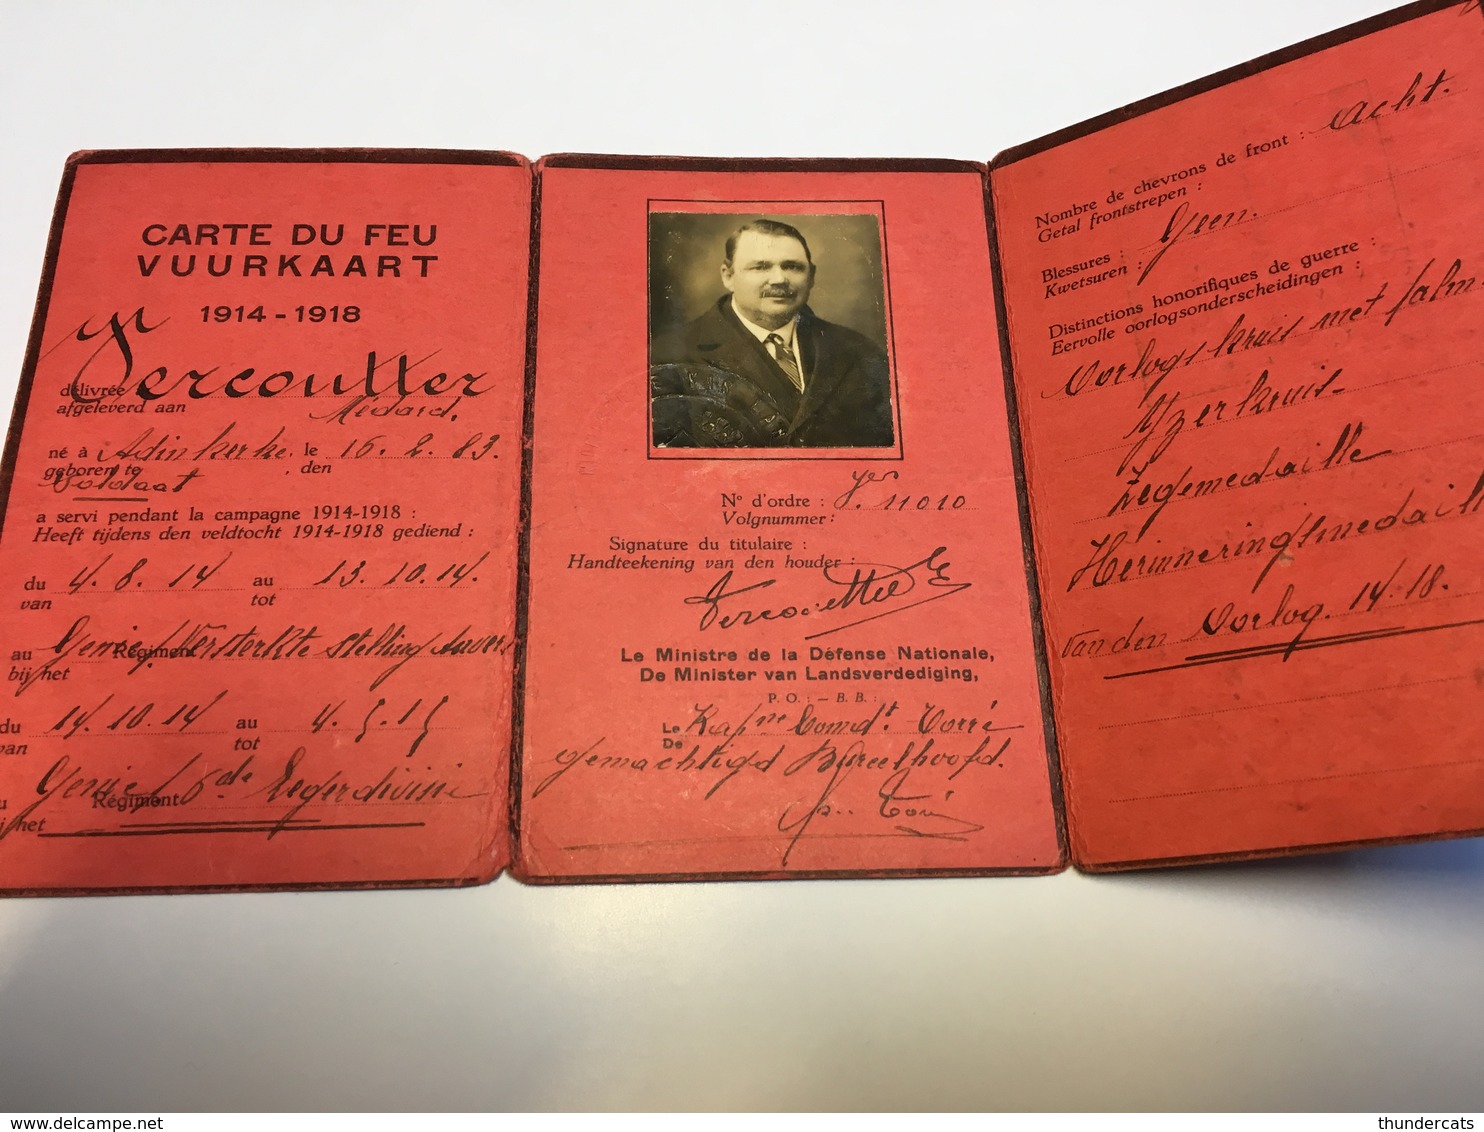 CARTE DU FEU
VUURKAART
1914 - 1918
Vercoutter
délivrée
afgeleverd aan Médard.
né à Adinkerke, le 16. 2. 83.
geboren te , den
Soldaat
a servi pendant la campagne 1914-1918 :
Heeft tijdens den veldtocht 1914-1918 gediend :
du 4. 8. 14 au 13. 10. 14.
van tot
au Genie Régiment Versterkte Stelling Anvers
bij het
du 14. 10. 14 au 4. 5. 15
van tot
Genie 6de Legerdivisie
Régiment
bij het
N° d'ordre : 11010
Volgnummer :
Signature du titulaire :
Handteekening van den houder :
Vercoutter
Le Ministre de la Défense Nationale,
De Minister van Landsverdediging,
P. O. : — B. B. :
Le Kapne Comdt. Torré
De
gemachtigd Bureelhoofd.
Nombre de chevrons de front : Acht.
Getal frontstrepen :
Blessures : Geen.
Kwetsuren :
Distinctions honorifiques de guerre :
Eervolle oorlogsonderscheidingen :
Oorlogskruis met palm.
Yzerkruis-
Zegemedaille
Herinneringsmedaille
van den Oorlog. 14-18.
thundercats